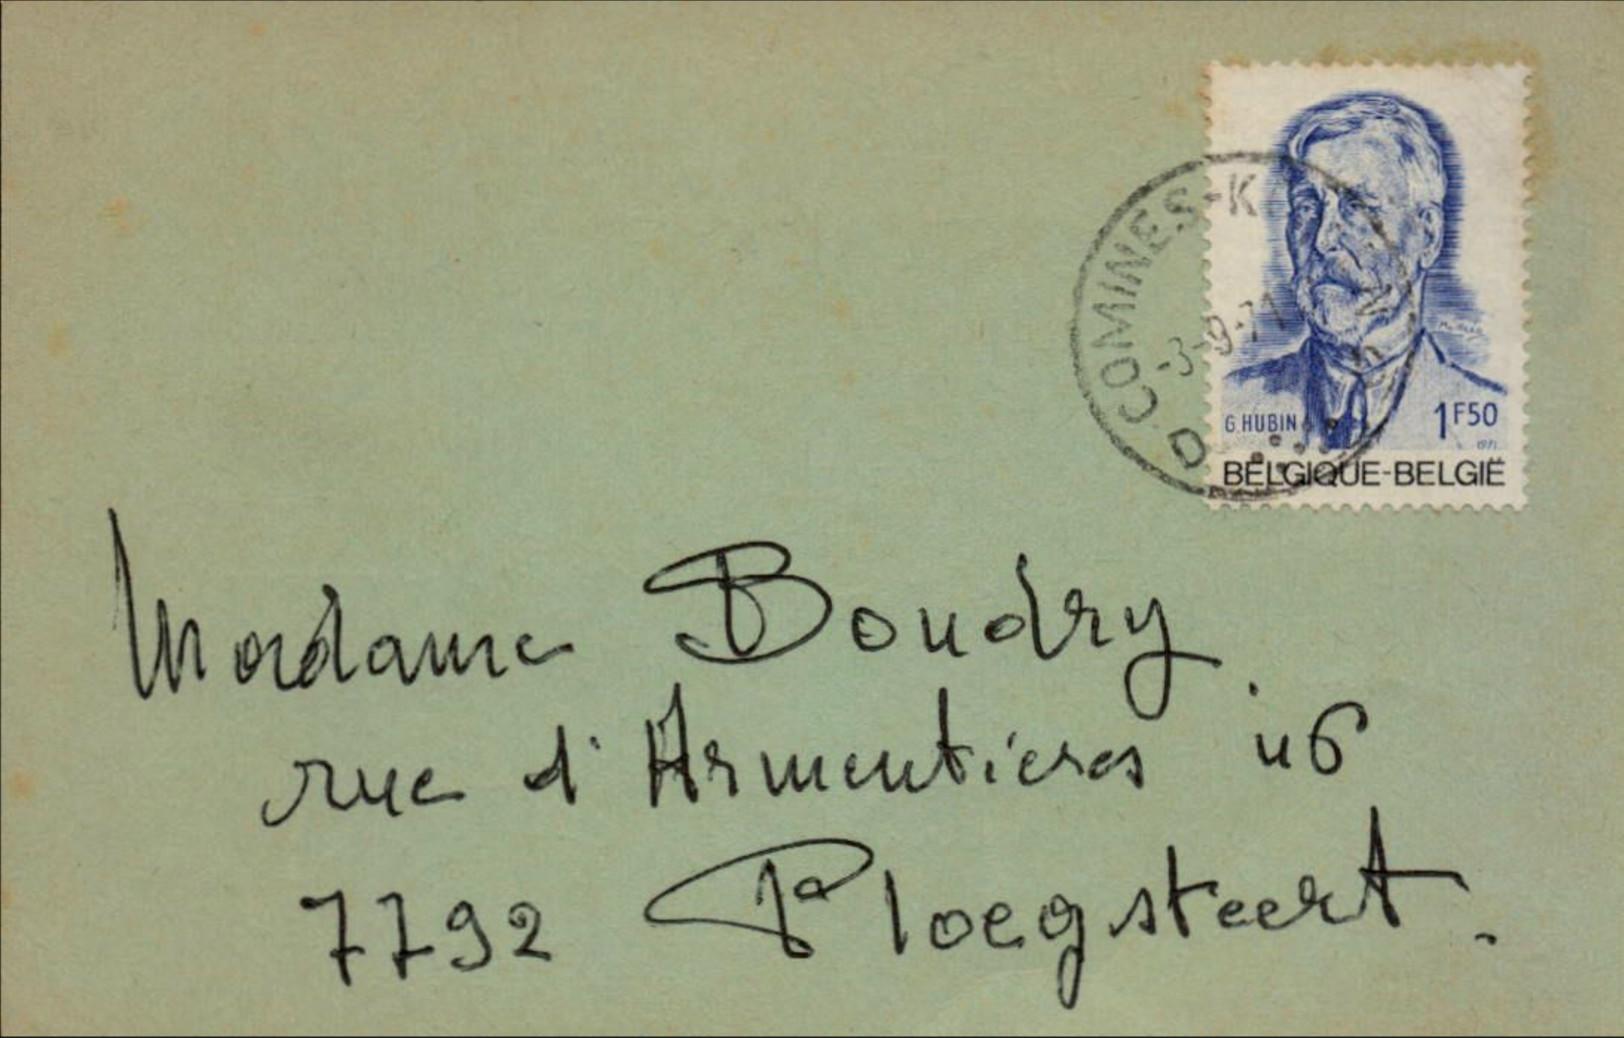 COMINES-K
-3-9-71
D
G.HUBIN
1F50
1971
BELGIQUE-BELGIË
Madame Boudry
rue d'Armentieres
7792 Ploegsteert.